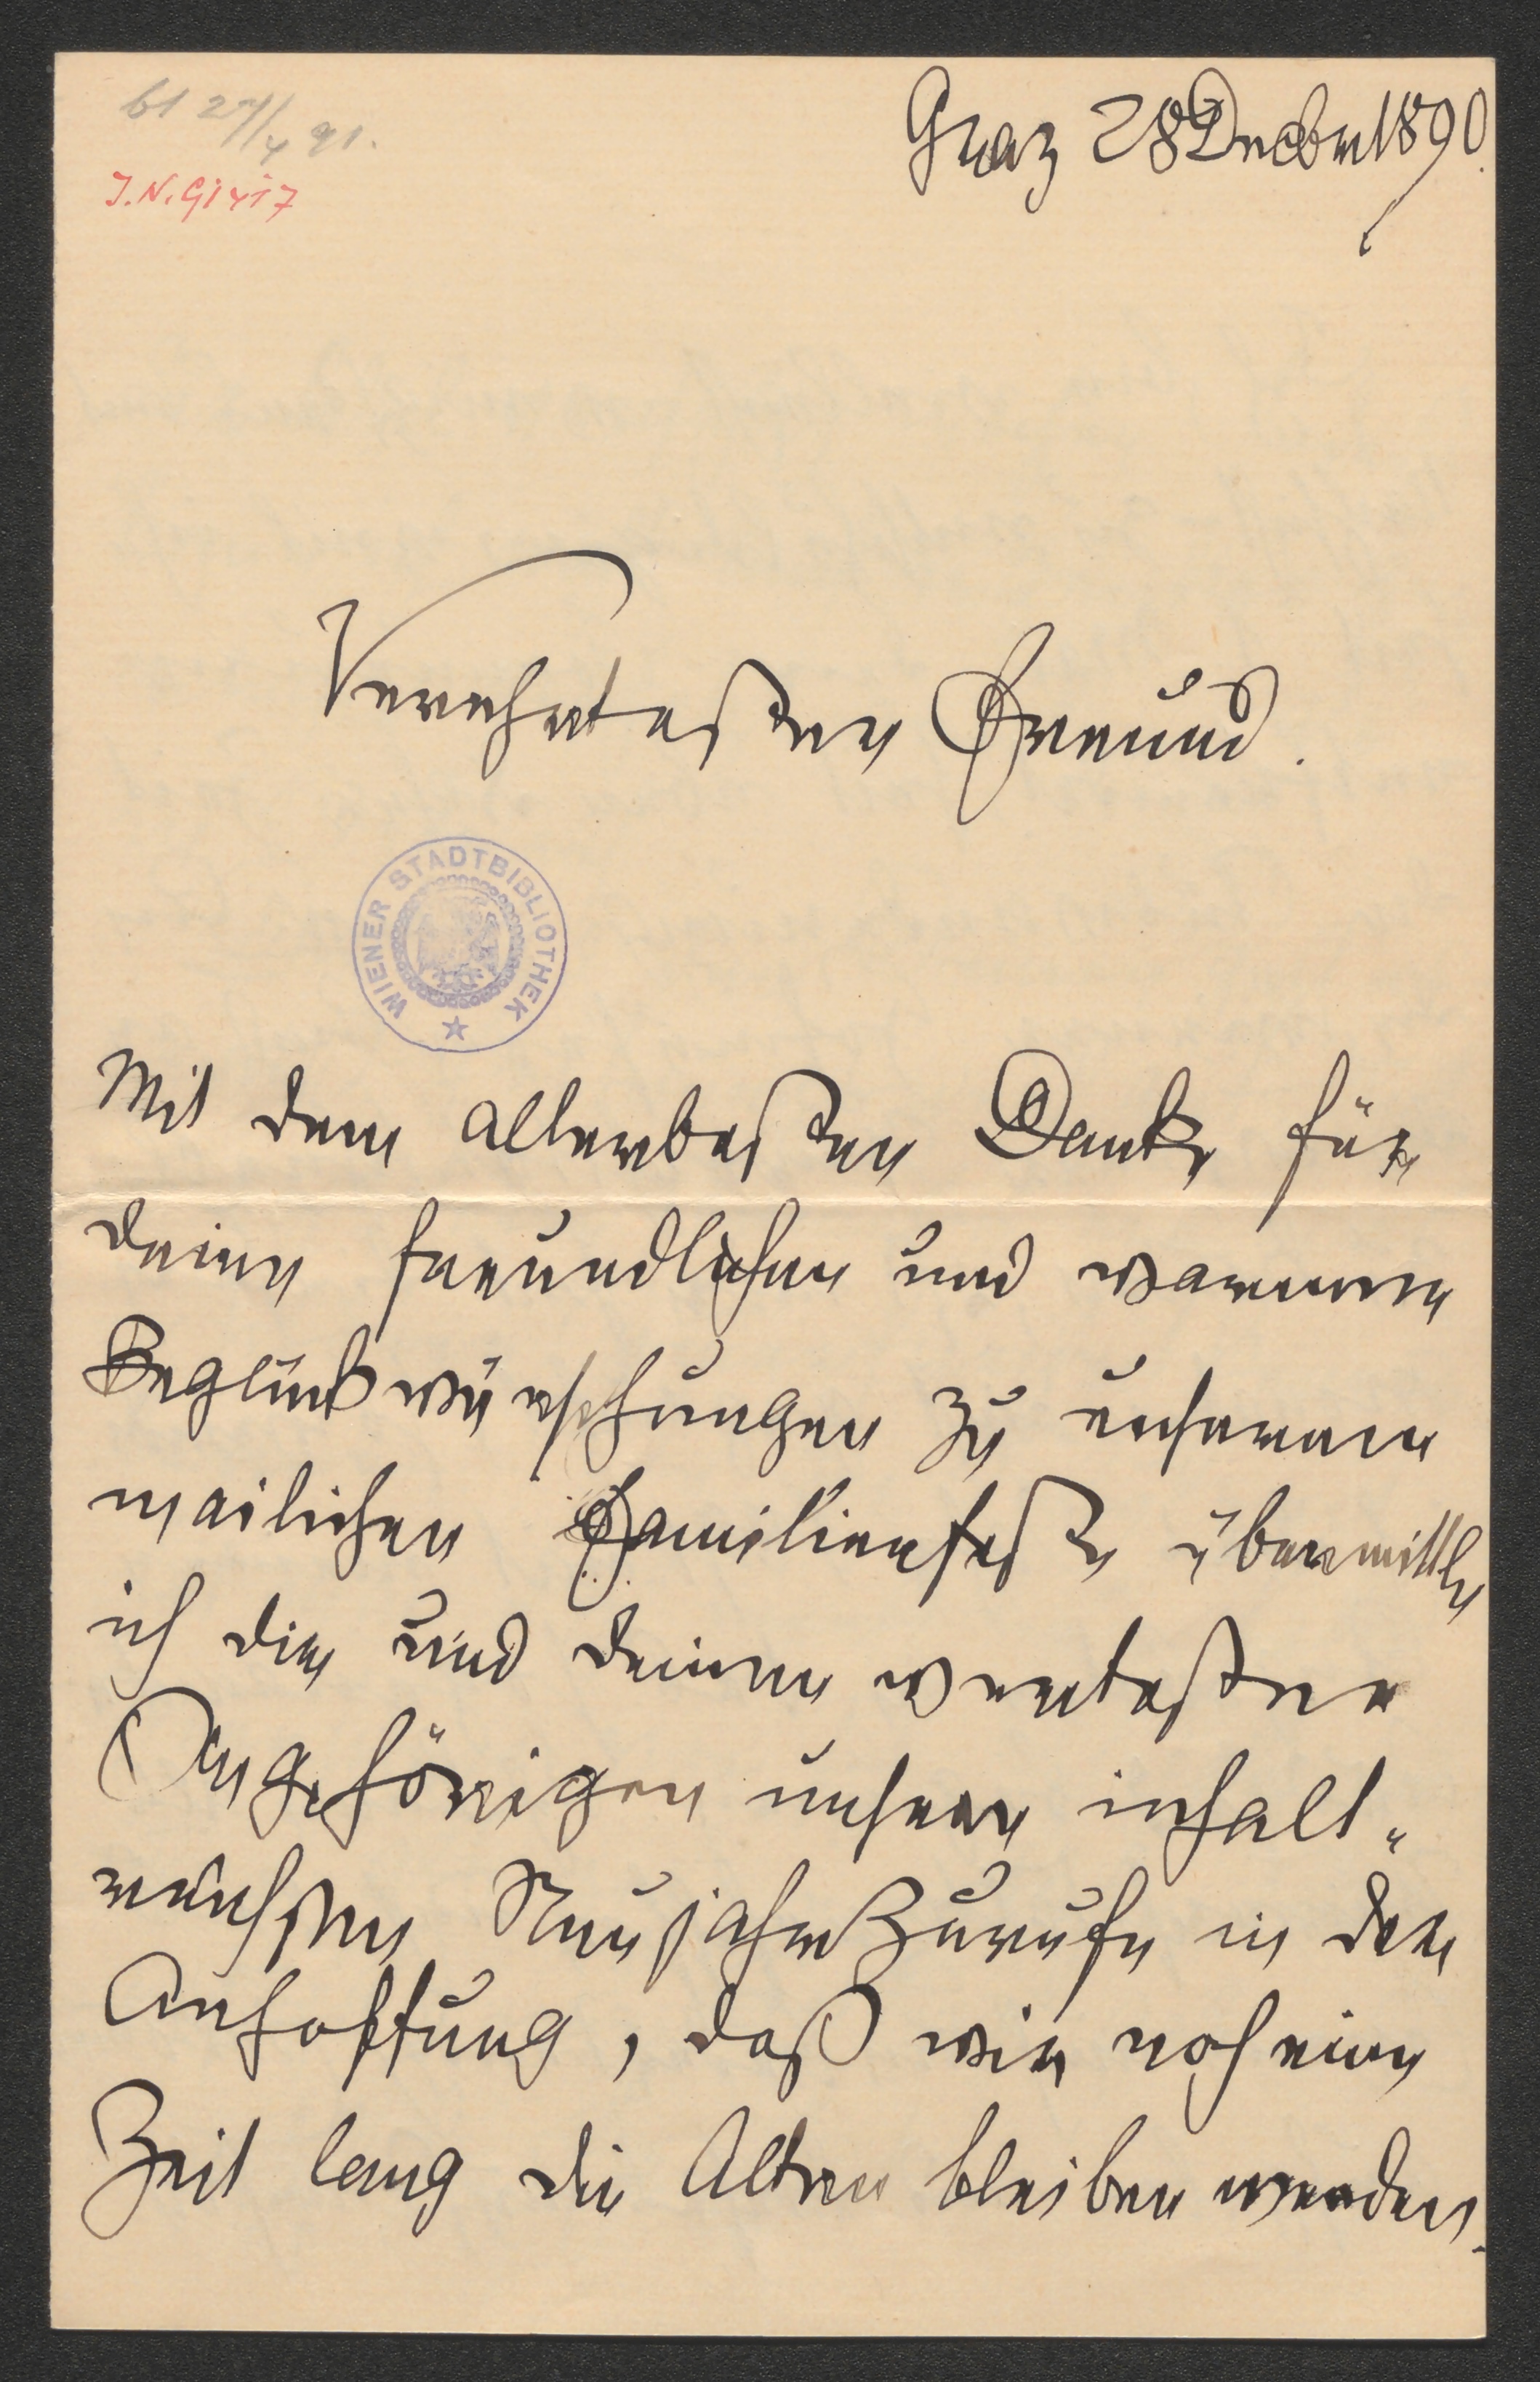 bt 27/4 91.
J.N. 61417
Graz 28 Decbr 1890.
Verehrtester Freund.
WIENER STADTBIBLIOTHEK
Mit dem allerbesten Danke für
deine freundlichen und warmen
Beglückwünschungen zu unserem
mailichen Familienfeste übermittle
ich dir und deinen wertesten
Angehörigen unsere inhalt-
reichsten Neujahrszurufe in der
Anhoffung, daß wir noch eine
Zeit lang die Alten bleiben werden.